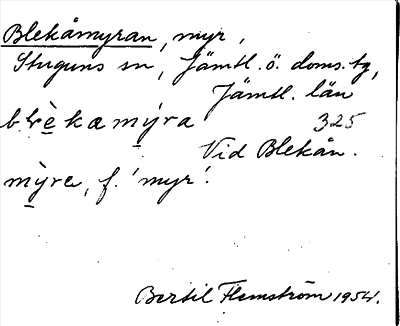 Blekåmyran, myr,
Stuguns sn, Jämtl. ö. doms. tg,
Jämtl. län
325
Vid Blekån.
mỳre, f. 'myr'.
Bertil Flemström 1954.